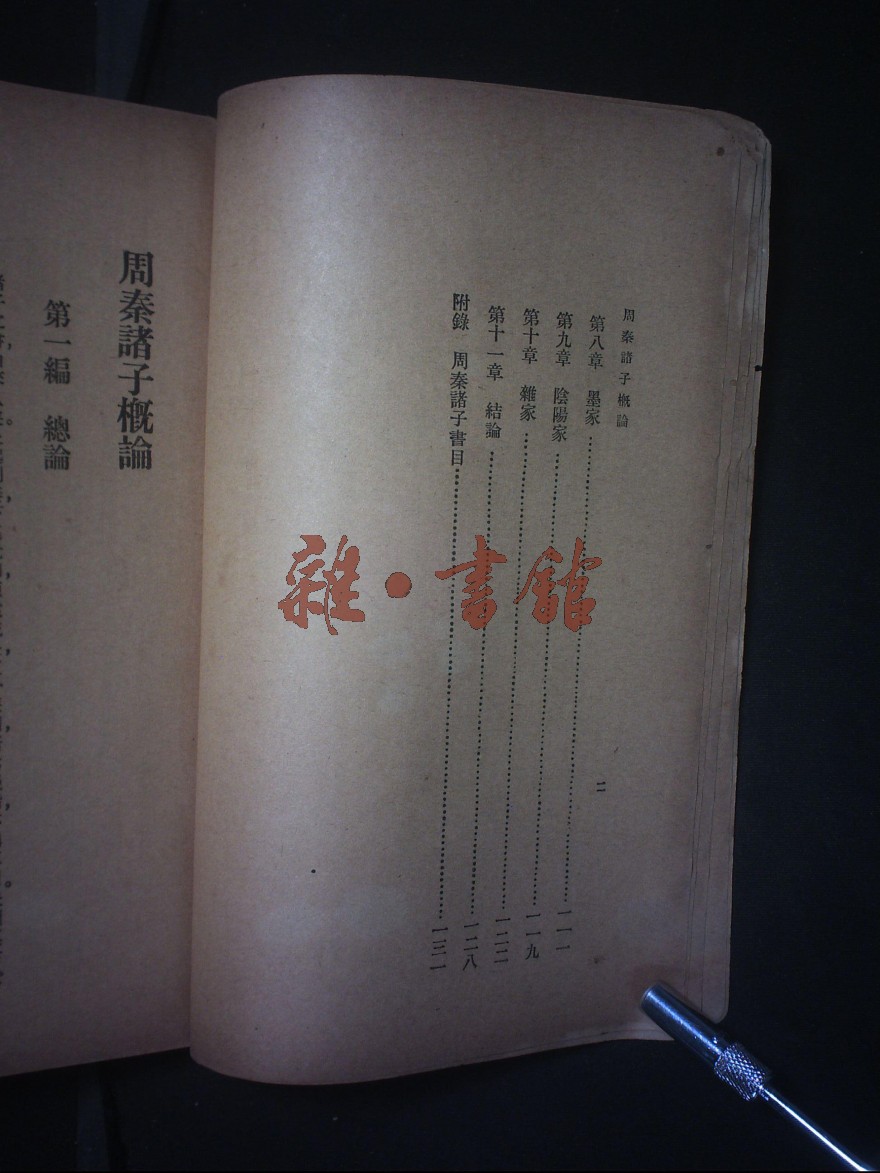 周秦諸子概論
二
第八章　墨家……一一一
第九章　陰陽家……一一九
第十章　雜家……一二二
第十一章　結論……一二八
附錄　周秦諸子書目……一三一
周秦諸子概論
第一編　總論
雜·書館